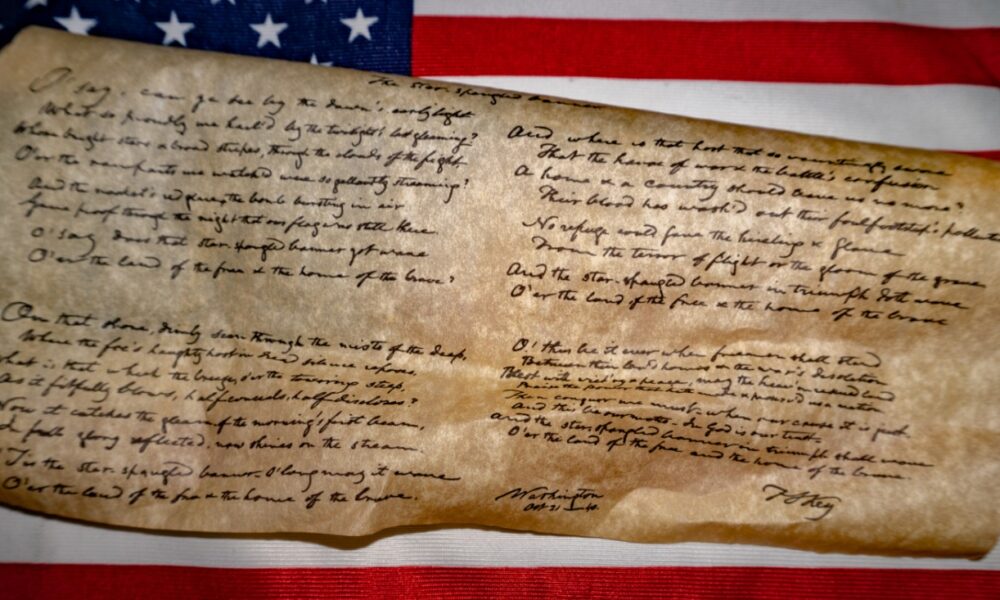 The star-spangled banner
O! say, can ye see by the dawn's early light
What so proudly we hail'd by the twilight's last gleaming?
Whose bright stars & broad stripes, through the clouds of the fight,
O'er the ramparts we watch'd were so gallantly streaming?
And the rocket's red glare, the bomb bursting in air
Gave proof through the night that our flag was still there
O! say, does that star-spangled banner yet wave
O'er the land of the free & the home of the brave?
On that shore, dimly seen through the mists of the deep,
Where the foe's haughty host in dread silence reposes,
What is that which the breeze, o'er the towering steep,
As it fitfully blows, half conceals, half discloses?
Now it catches the gleam of the morning's first beam,
In full glory reflected, now shines on the stream.
'Tis the star-spangled banner - O! long may it wave
O'er the land of the free & the home of the brave.
And where is that host that so vauntingly swore
That the havoc of war & the battle's confusion
A home & a country should leave us no more?
Their blood has wash'd out their foul footstep's pollution
No refuge could save the hireling & slave
From the terror of flight or the gloom of the grave
And the star-spangled banner in triumph doth wave
O'er the land of the free & the home of the brave
O! thus be it ever when freemen shall stand
Between their lov'd homes & the war's desolation
Blest with vict'ry & peace, may the heav'n rescued land
Praise the power that hath made & preserv'd us a nation
Then conquer we must, when our cause it is just,
And this be our motto - In God is our trust.
And the star-spangled banner in triumph shall wave
O'er the land of the free and the home of the brave.
Washington
Oct 21 - 40.
F S Key